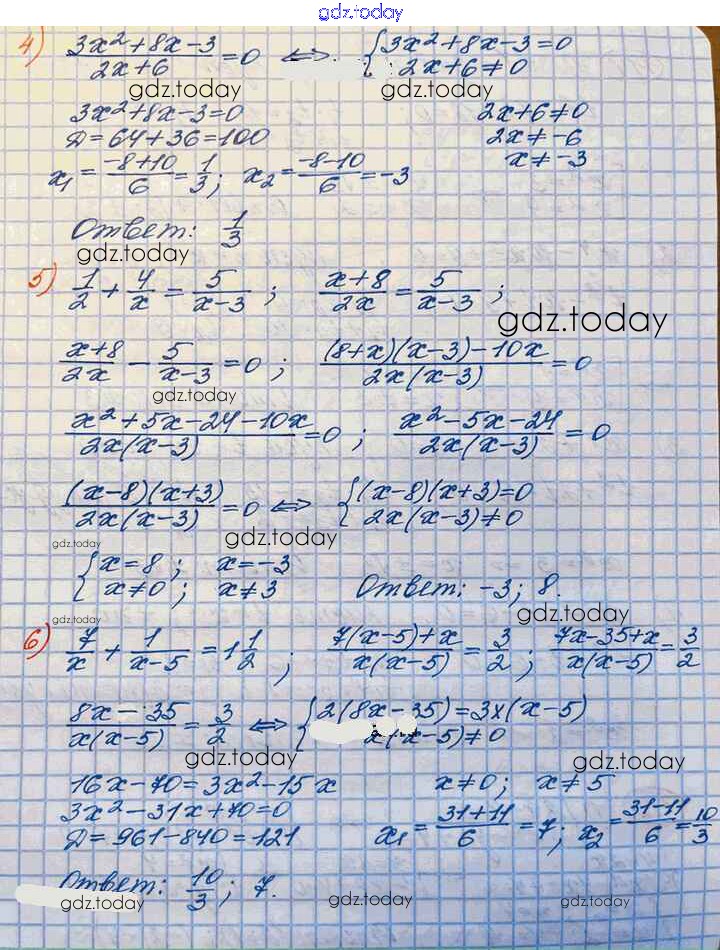 gdz.today
4) (3x²+8x-3)/(2x+6) = 0 ⟺ { 3x²+8x-3=0
2x+6≠0
gdz.today gdz.today
3x²+8x-3=0 2x+6≠0
Д=64+36=100 2x≠-6
x₁ = (-8+10)/6 = 1/3; x₂ = (-8-10)/6 = -3 x≠-3
Ответ: 1/3
gdz.today
5) 1/2 + 4/x = 5/(x-3) ; (x+8)/(2x) = 5/(x-3) ;
gdz.today
(x+8)/(2x) - 5/(x-3) = 0 ; ((8+x)(x-3)-10x)/(2x(x-3)) = 0
gdz.today
(x²+5x-24-10x)/(2x(x-3)) = 0 ; (x²-5x-24)/(2x(x-3)) = 0
((x-8)(x+3))/(2x(x-3)) = 0 ⟺ { (x-8)(x+3)=0
2x(x-3)≠0
gdz.today gdz.today
{ x=8 ; x=-3
x≠0 ; x≠3 Ответ: -3; 8.
gdz.today gdz.today
6) 7/x + 1/(x-5) = 1 1/2 ; (7(x-5)+x)/(x(x-5)) = 3/2 ; (7x-35+x)/(x(x-5)) = 3/2
(8x-35)/(x(x-5)) = 3/2 ⟺ { 2(8x-35)=3x(x-5)
x(x-5)≠0
gdz.today gdz.today
16x-70=3x²-15x x≠0 ; x≠5
3x²-31x+70=0
Д=961-840=121 x₁ = (31+11)/6 = 7; x₂ = (31-11)/6 = 10/3
Ответ: 10/3 ; 7.
gdz.today gdz.today gdz.today